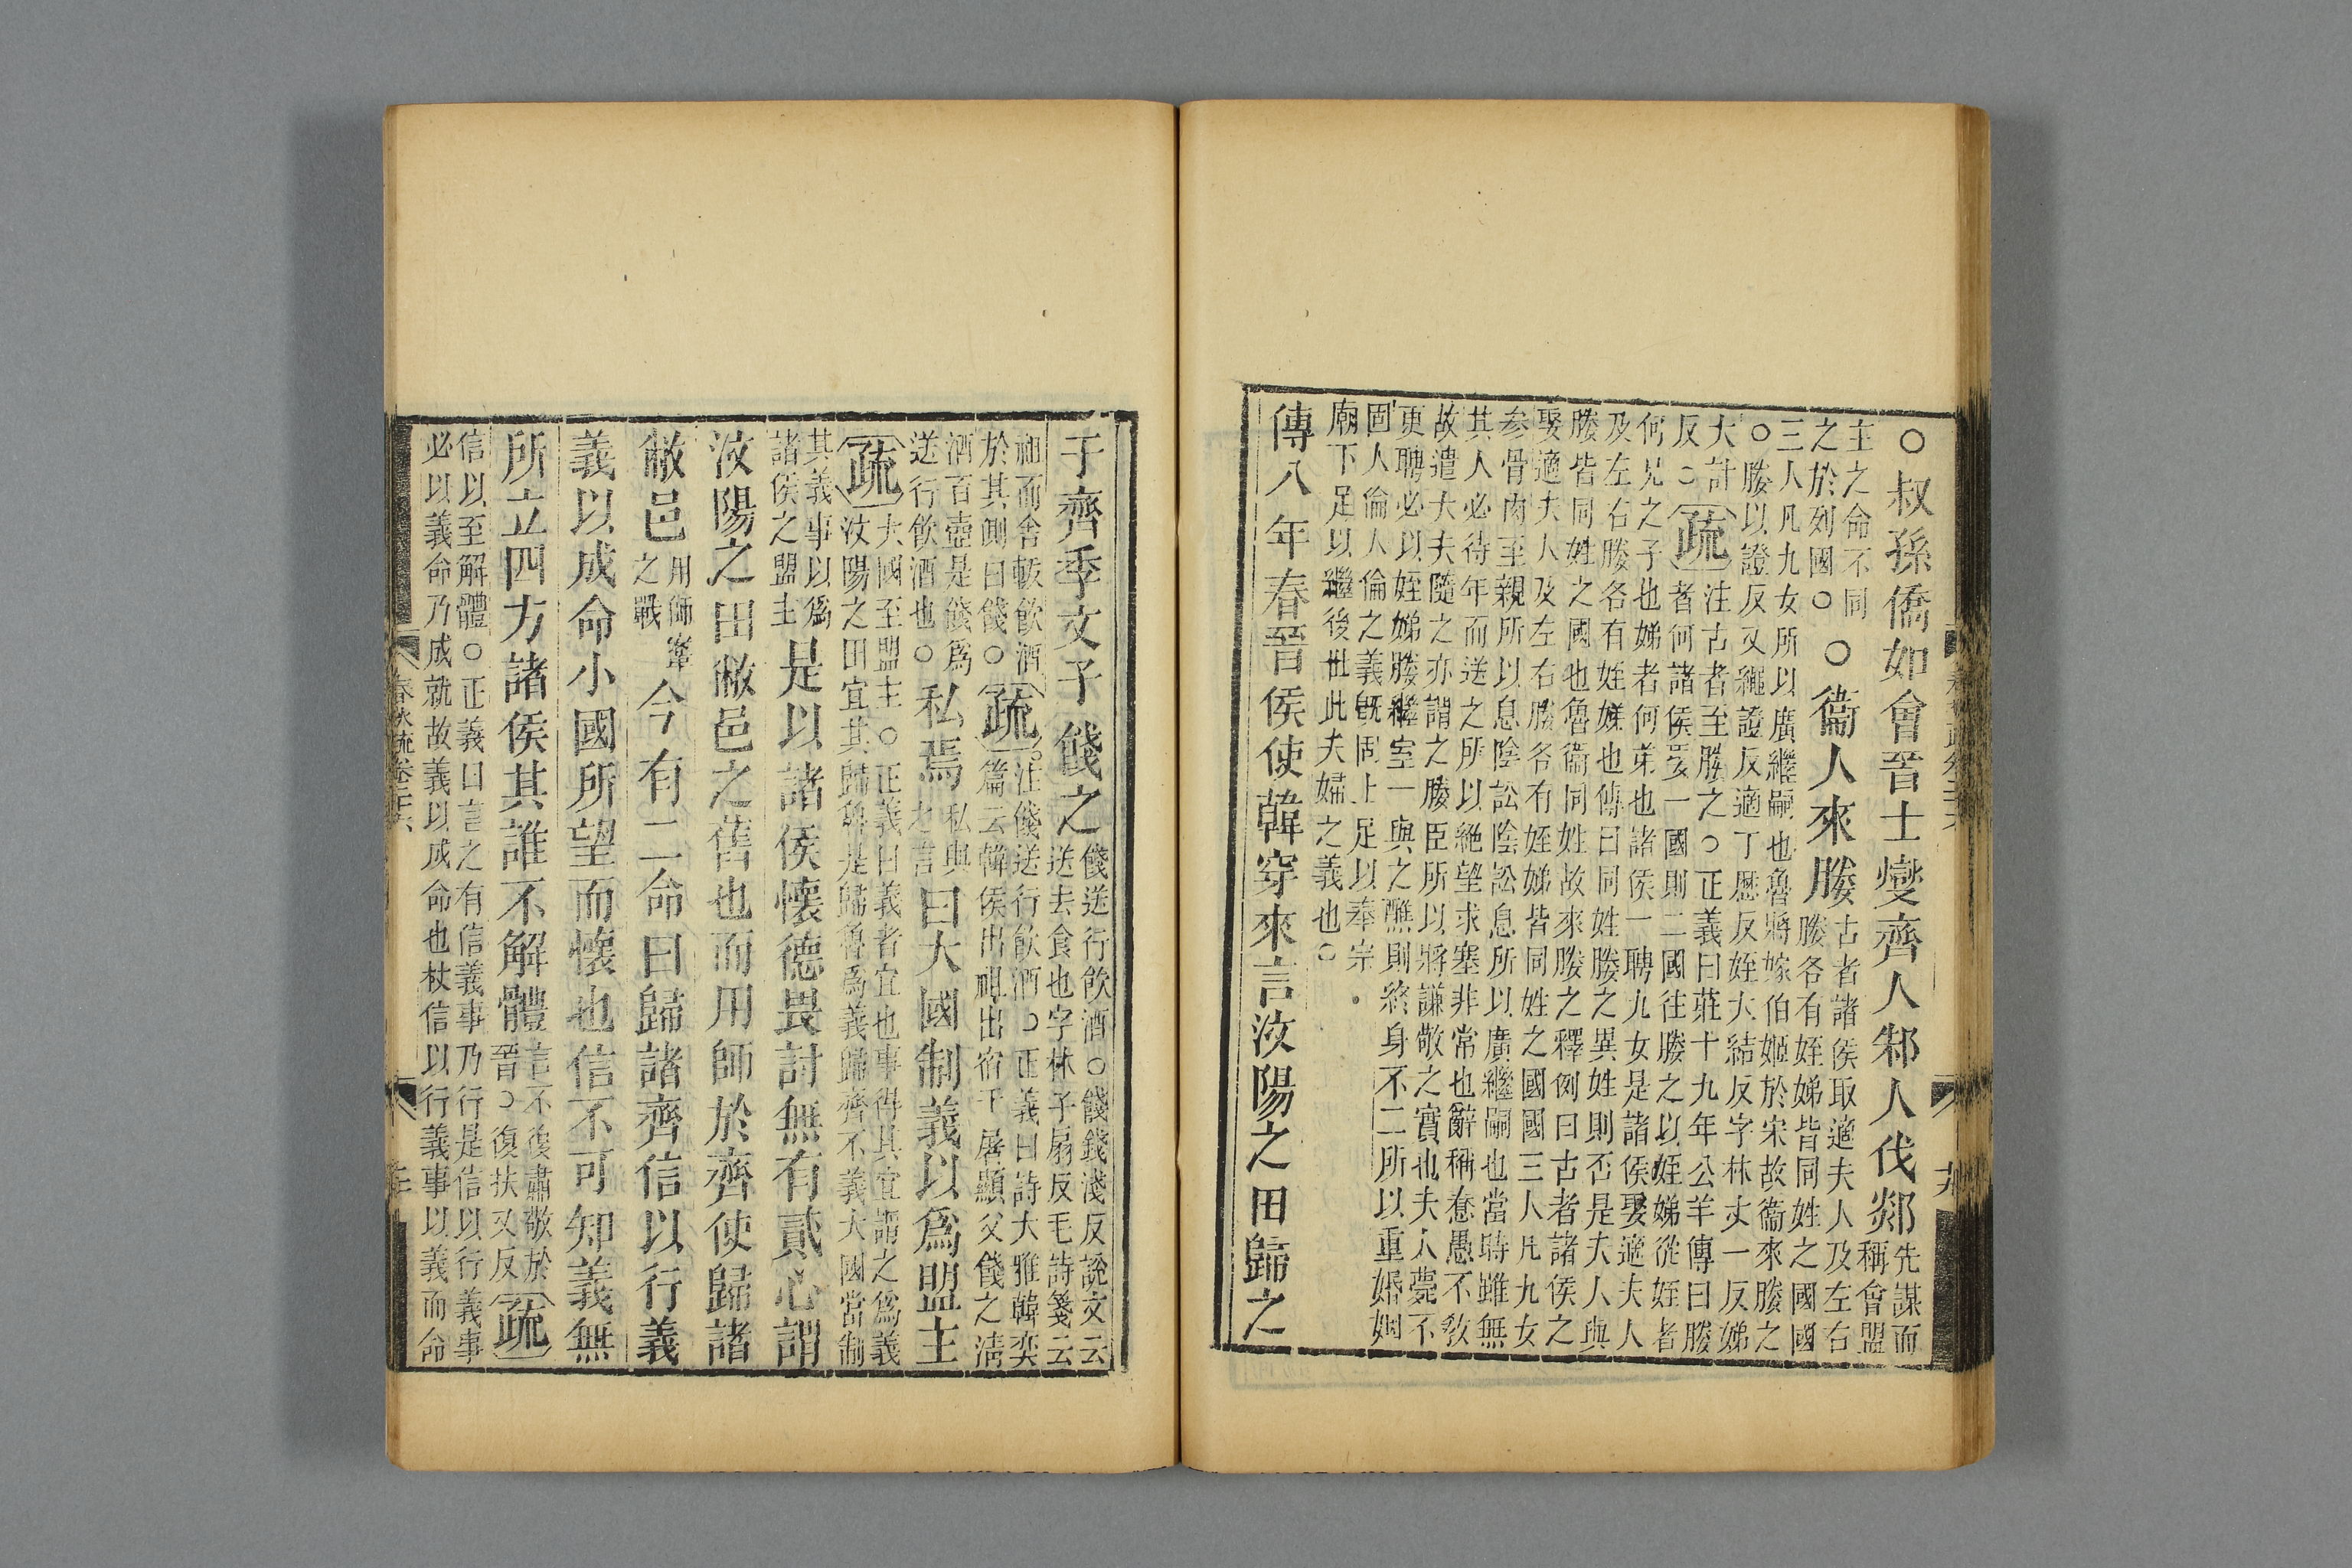 ○叔孫僑如會晉士燮齊人邾人伐郯先謀而
稱會盟
主之命不同
之於列國○
○衞人來媵古者諸侯取適夫人及左右
媵各有姪娣皆同姓之國國
三人凡九女所以廣繼嗣也魯將嫁伯姬於宋故衞來媵之
○媵以證反又繩證反適丁歷反姪大結反字林丈一反娣
大計
反○
疏注古者至媵之○正義曰莊十九年公羊傳曰媵
者何諸侯娶一國則二國往媵之以姪娣從姪者
何兄之子也娣者何弟也諸侯一聘九女是諸侯娶適夫人
及左右媵各有姪娣也傳曰同姓媵之異姓則否是夫人與
媵皆同姓之國也魯衞同姓故來媵之釋例曰古者諸侯之
娶適夫人及左右媵各有姪娣皆同姓之國國三人凡九女
参骨肉至親所以息陰訟陰訟息所以廣繼嗣也當時雖無
其人必待年而送之所以絶望求塞非常也辭稱惷愚不敎
故遣大夫隨之亦謂之媵臣所以將謙敬之實也夫人薨不
更聘必以姪娣媵繼室一與之醮則終身不二所以重婚姻
固人倫人倫之義旣固上足以奉宗
廟下足以繼後世此夫婦之義也○
傳八年春晉侯使韓穿來言汶陽之田歸之
于齊季文子餞之餞送行飲酒○餞錢淺反說文云
送去食也字林子扇反毛詩箋云
祖而舍軷飲酒
於其側曰餞○
疏注餞送行飲酒○正義曰詩大雅韓奕
篇云韓侯出祖出宿于屠顯父餞之淸
酒百壺是餞爲
送行飲酒也○
私焉私與
之言
曰大國制義以爲盟主
疏大國至盟主○正義曰義者宜也事得其宜謂之爲義
汶陽之田宜其歸魯是歸魯爲義歸齊不義大國當制
其義事以爲
諸侯之盟主
是以諸侯懷德畏討無有貳心謂
汶陽之田敝邑之舊也而用師於齊使歸諸
敝邑用師鞌
之戰
今有二命曰歸諸齊信以行義
義以成命小國所望而懷也信不可知義無
所立四方諸侯其誰不解體言不復肅敬於
晉○復扶又反
疏
信以至解體○正義曰言之有信義事乃行是信以行義事
必以義命乃成就故義以成命也杖信以行義事以義而命
春秋疏卷二十六